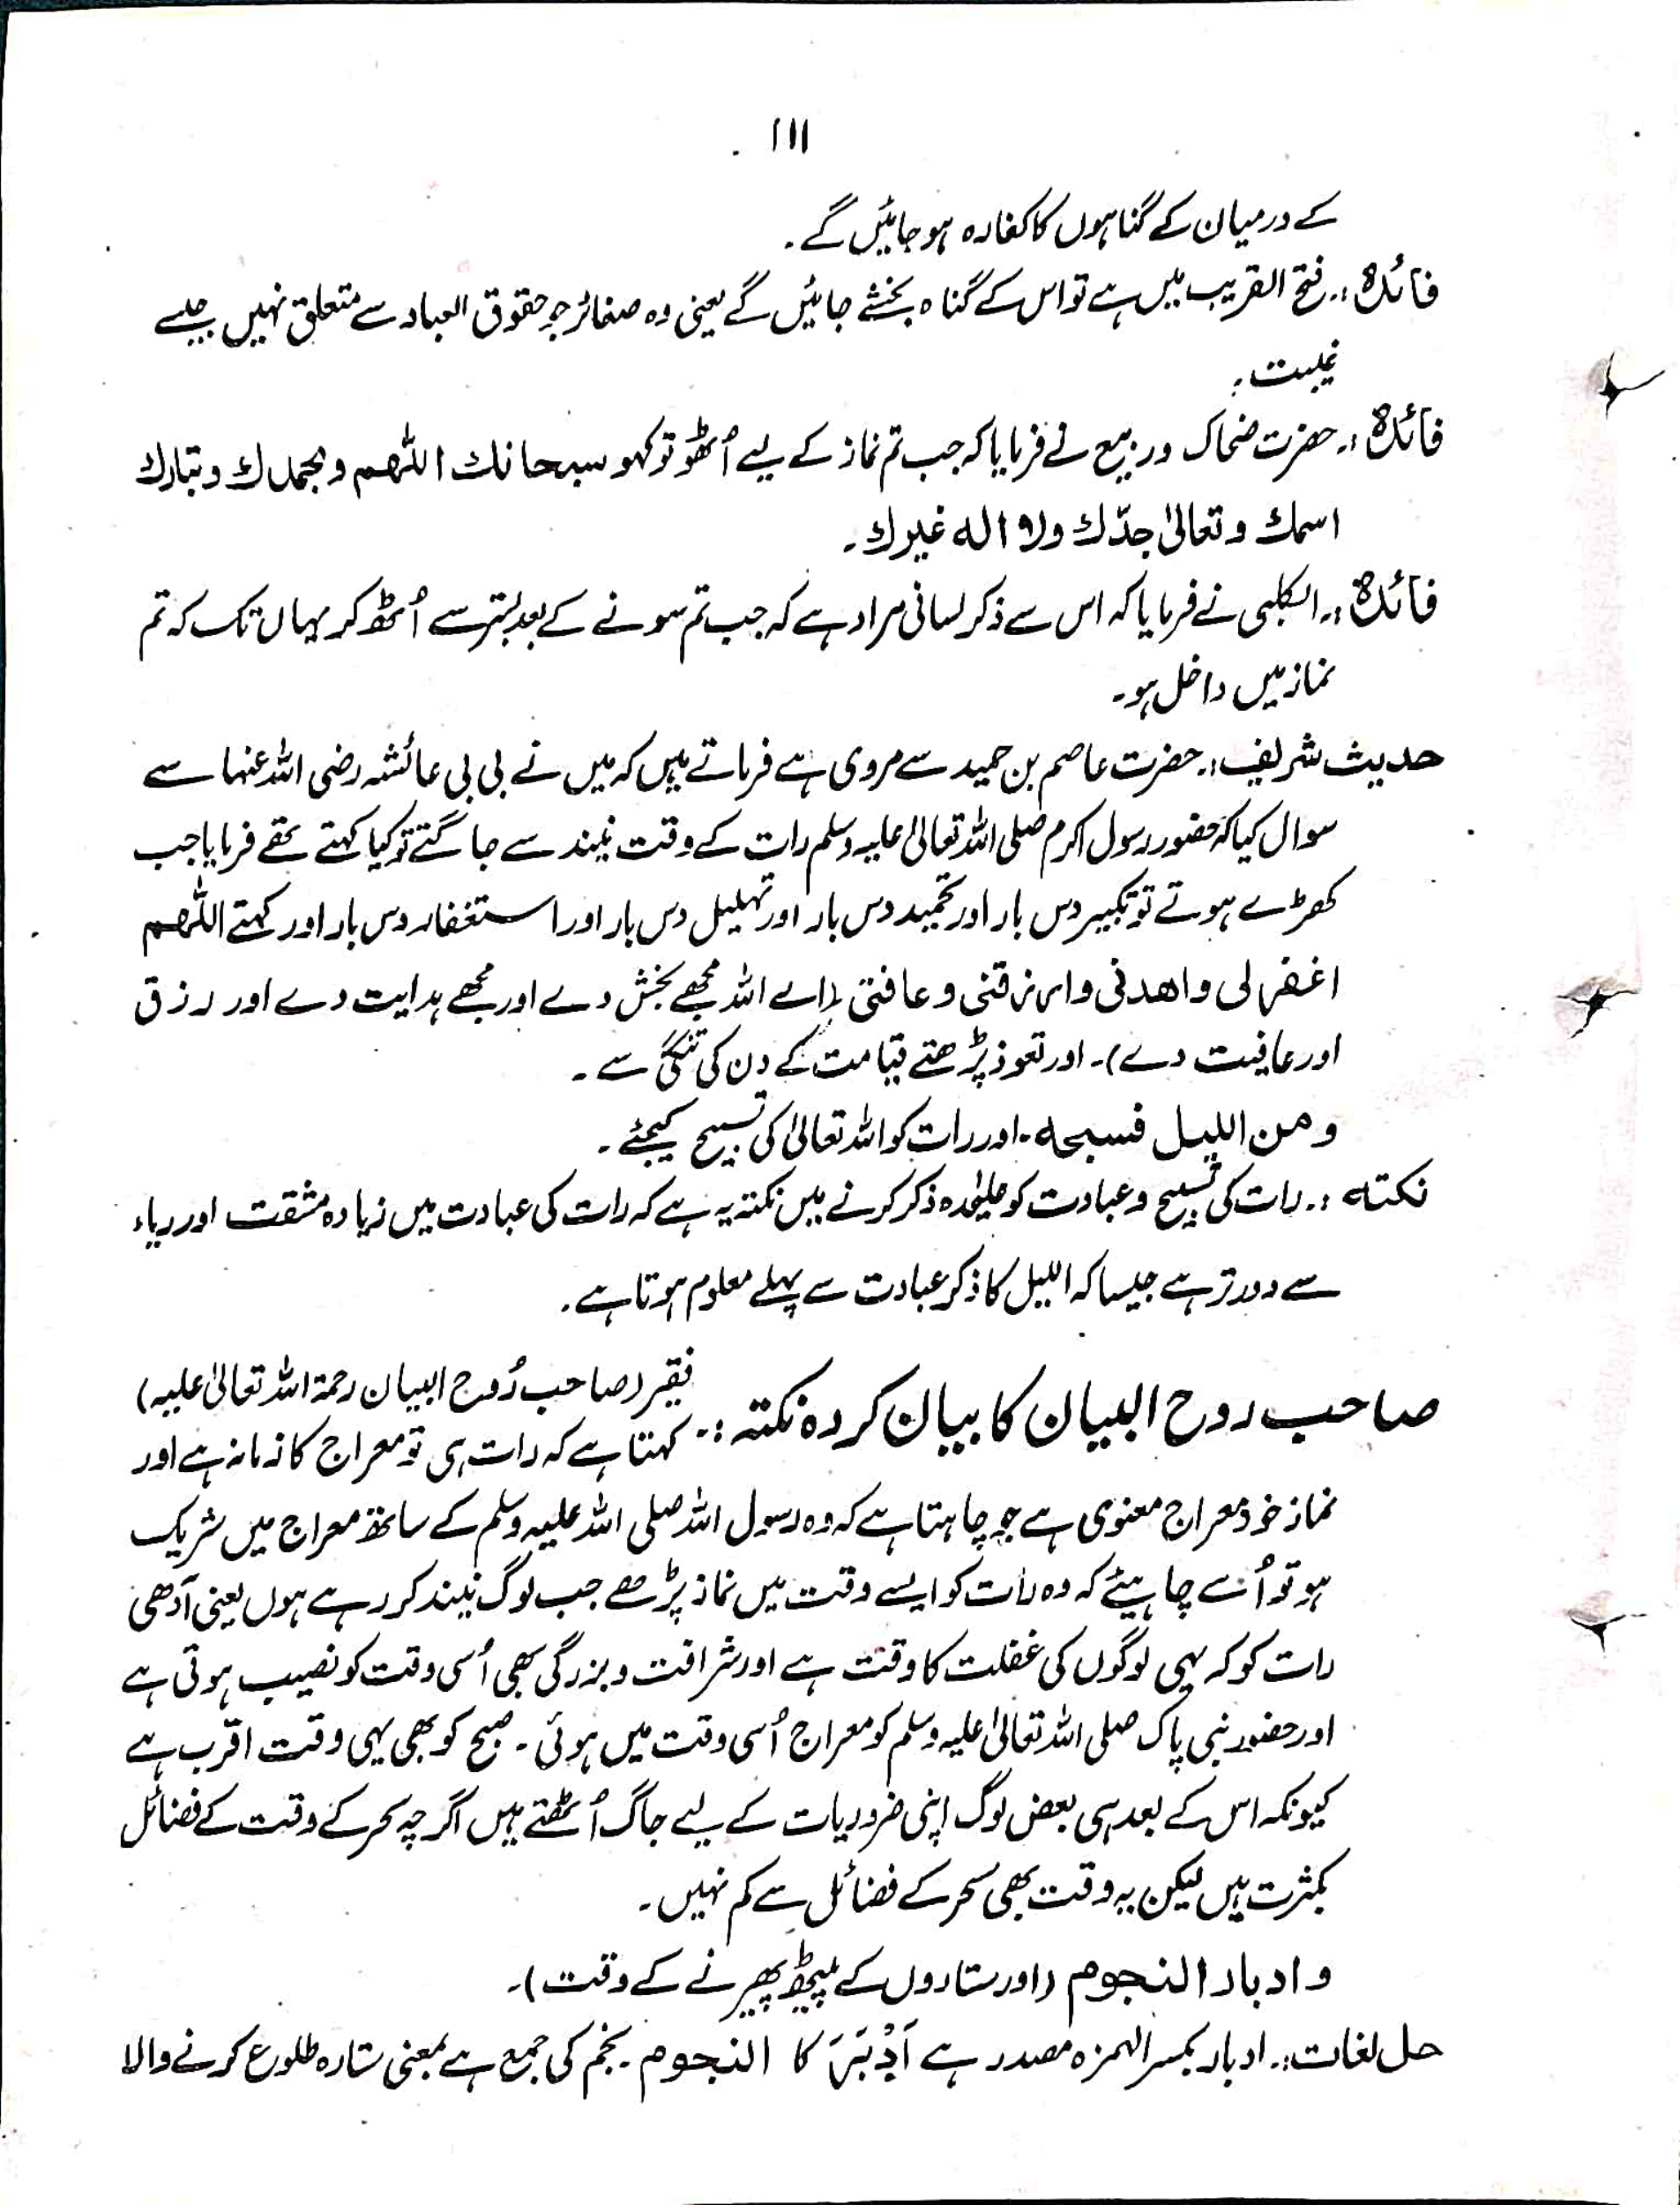 ۱۱۱
کے درمیان کے گناہوں کا کفارہ ہو جائیں گے۔
فائدہ :۔ فتح القریب میں ہے تو اس کے گناہ بخشے جائیں گے یعنی وہ صغائر جو حقوق العباد سے متعلق نہیں جیسے
غیبت۔
فائدہ :۔ حضرت ضحاک و ربیع نے فرمایا کہ جب تم نماز کے لیے اُٹھو تو کہو سبحانك اللٰھم وبحمدك وتبارك
اسمك وتعالیٰ جدّك ولا الہ غیرك۔
فائدہ :۔ الکلبی نے فرمایا کہ اس سے ذکر لسانی مراد ہے کہ جب تم سونے کے بعد بستر سے اُٹھ کر یہاں تک کہ تم
نماز میں داخل ہو۔
حدیث شریف :۔ حضرت عاصم بن حمید سے مروی ہے فرماتے ہیں کہ میں نے بی بی عائشہ رضی اللہ عنہا سے
سوال کیا کہ حضور رسول اکرم صلی اللہ تعالیٰ علیہ وسلم رات کے وقت نیند سے جاگتے تو کیا کہتے تھے فرمایا جب
کھڑے ہوتے تو تکبیر دس بار اور تحمید دس بار اور تہلیل دس بار اور استغفار دس بار اور کہتے اللٰھم
اغفر لی واھدنی وارزقنی وعافنی (اے اللہ مجھے بخش دے اور مجھے ہدایت دے اور رزق
اور عافیت دے)۔ اور تعوذ پڑھتے قیامت کے دن کی تنگی سے۔
ومن اللیل فسبحہ۔ اور رات کو اللہ تعالیٰ کی تسبیح کیجئے۔
نکتہ :۔ رات کی تسبیح و عبادت کو علیٰحدہ ذکر کرنے میں نکتہ یہ ہے کہ رات کی عبادت میں زیادہ مشقت اور ریاء
سے دور تر ہے جیسا کہ اللیل کا ذکر عبادت سے پہلے معلوم ہوتا ہے۔
صاحب روح البیان کا بیان کردہ نکتہ :۔ فقیر (صاحب رُوح البیان رحمۃ اللہ تعالیٰ علیہ)
کہتا ہے کہ رات ہی تو معراج کا زمانہ ہے اور
نماز خود معراج معنوی ہے جو چاہتا ہے کہ وہ رسول اللہ صلی اللہ علیہ وسلم کے ساتھ معراج میں شریک
ہو تو اُسے چاہیئے کہ وہ رات کو ایسے وقت میں نماز پڑھے جب لوگ نیند کر رہے ہوں یعنی آدھی
رات کو کہ یہی لوگوں کی غفلت کا وقت ہے اور شرافت و بزرگی بھی اُسی وقت کو نصیب ہوتی ہے
اور حضور نبی پاک صلی اللہ تعالیٰ علیہ وسلم کو معراج اُسی وقت میں ہوئی۔ صبح کو بھی یہی وقت اقرب ہے
کیونکہ اس کے بعد ہی بعض لوگ اپنی ضروریات کے لیے جاگ اُٹھتے ہیں اگرچہ سحر کے وقت کے فضائل
بکثرت ہیں لیکن یہ وقت بھی سحر کے فضائل سے کم نہیں۔
وادبار النجوم (اور ستاروں کے پیٹھ پھیرنے کے وقت)۔
حل لغات :۔ ادبار بکسر الہمزہ مصدر ہے اَدْبَرَ کا النجوم۔ نجم کی جمع ہے بمعنی ستارہ طلوع کرنے والا